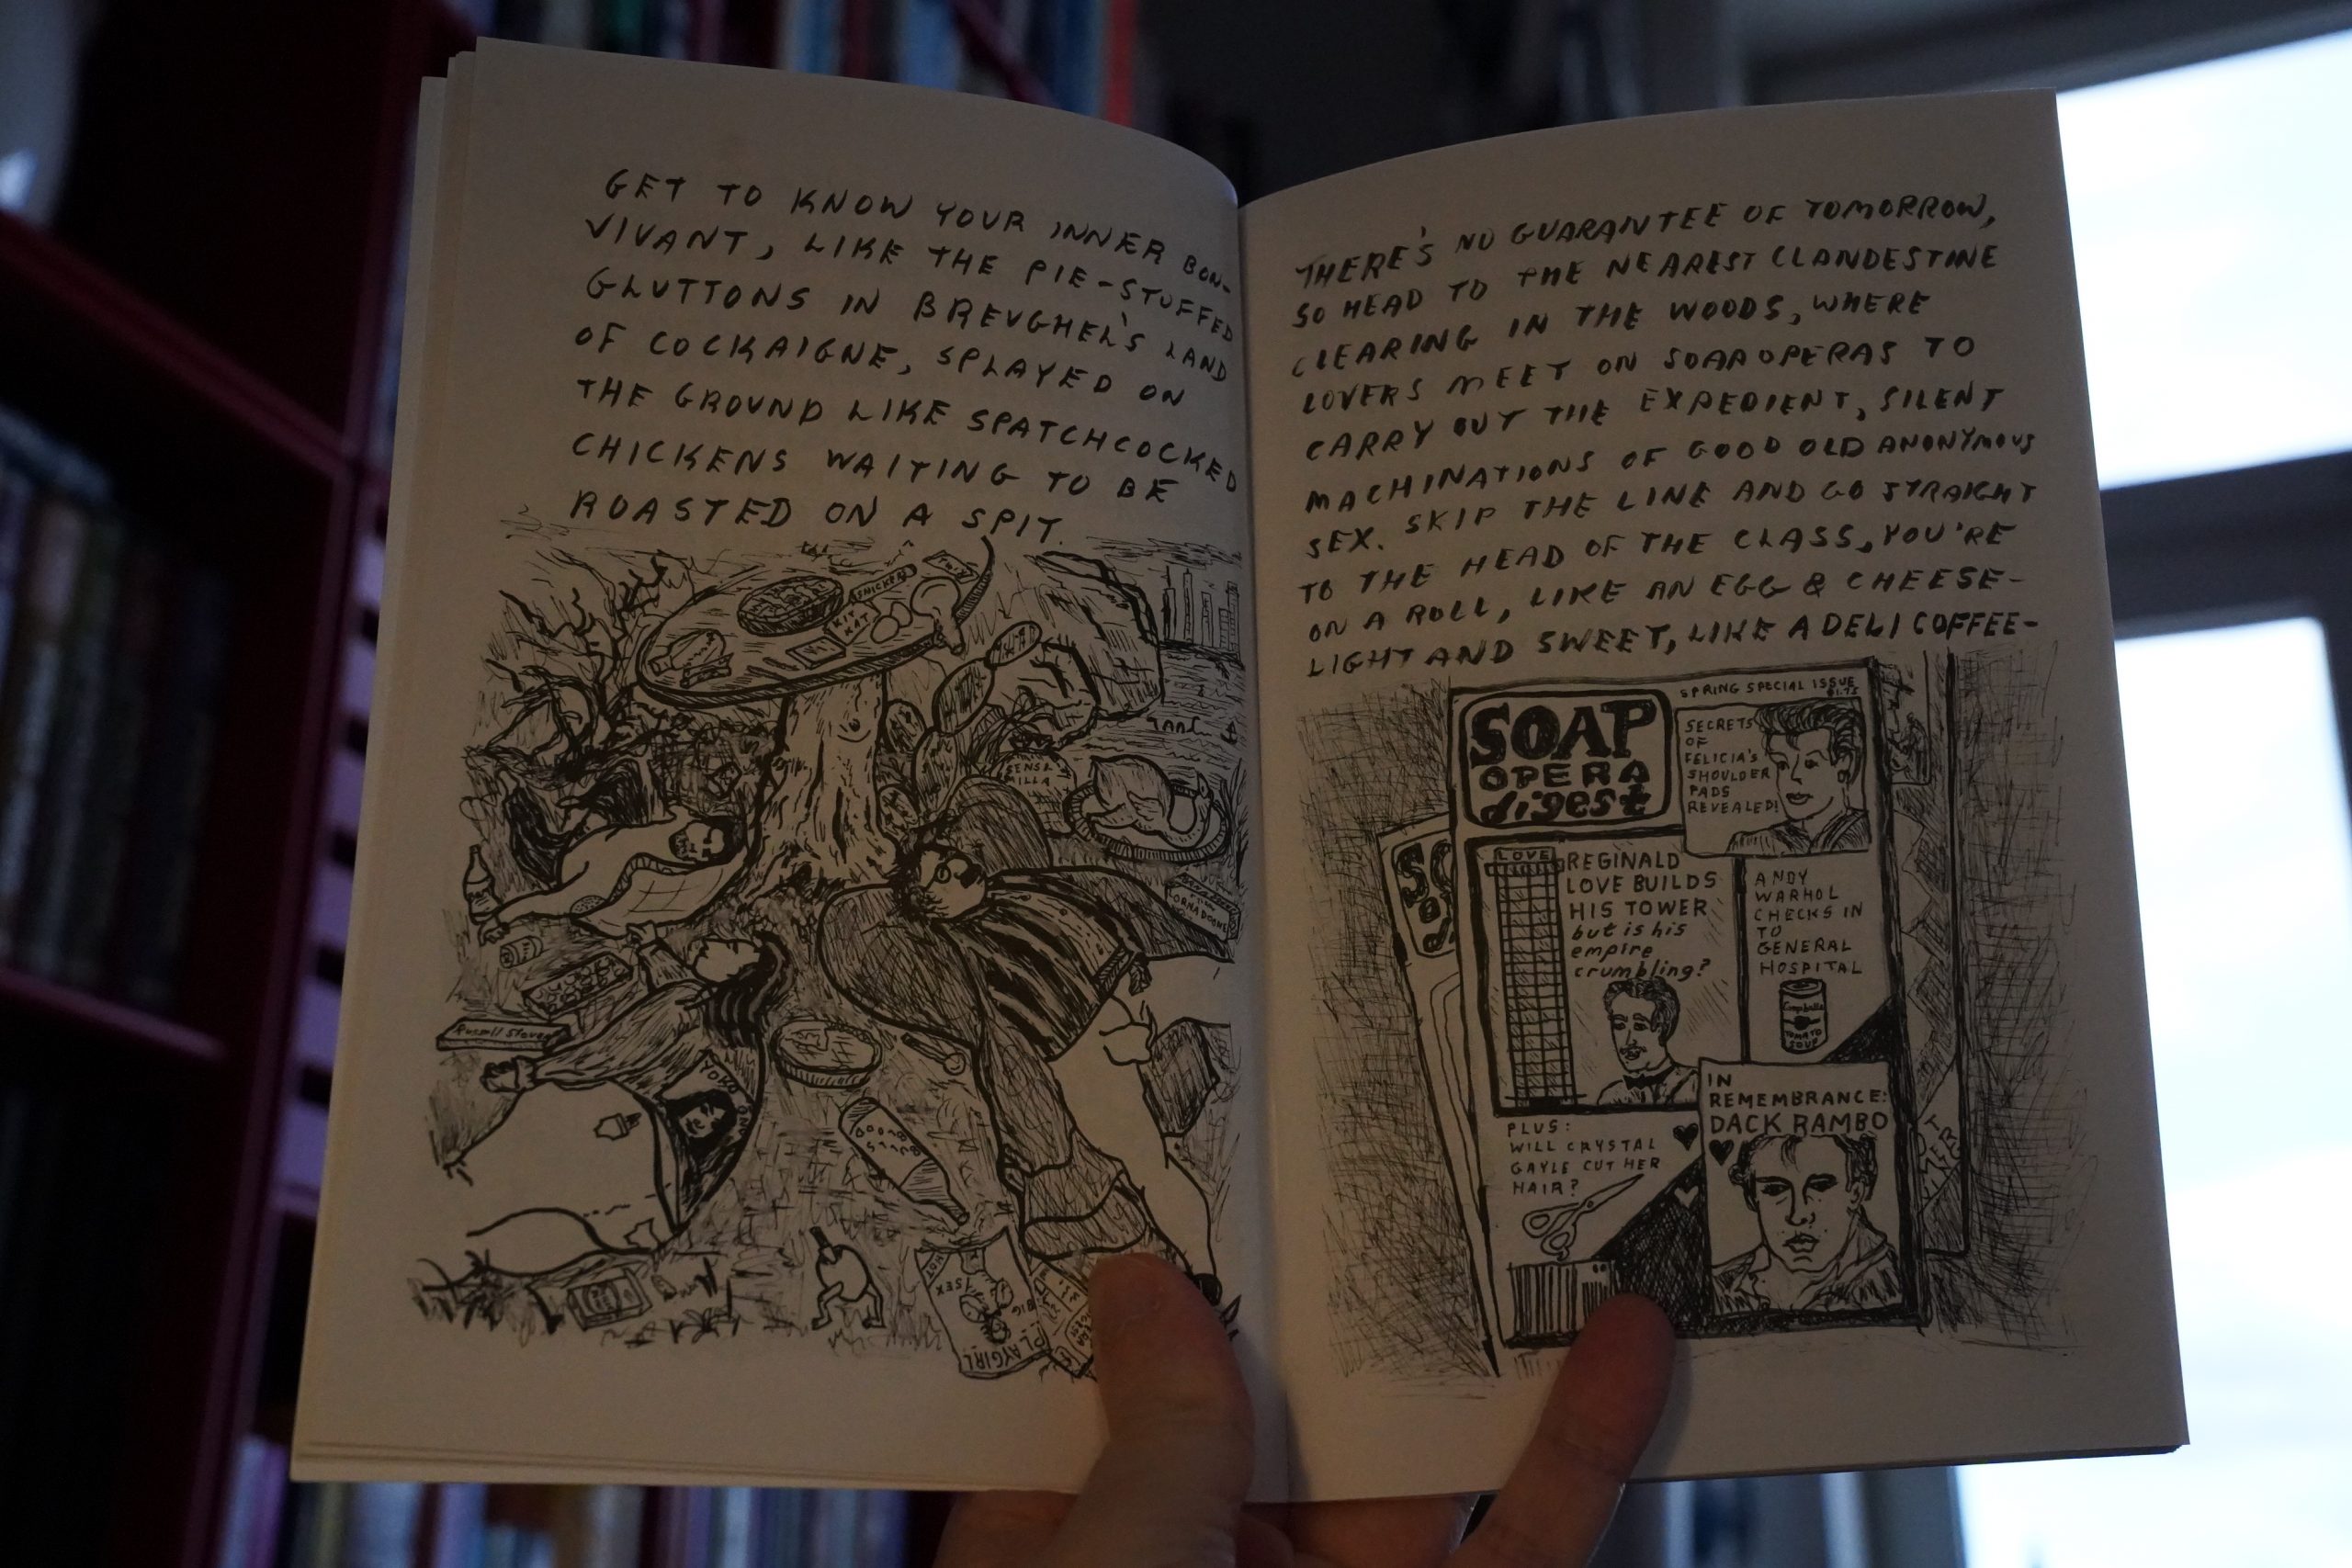 GET TO KNOW YOUR INNER BON-
VIVANT, LIKE THE PIE-STUFFED
GLUTTONS IN BREUGHEL'S LAND
OF COCKAIGNE, SPLAYED ON
THE GROUND LIKE SPATCHCOCKED
CHICKENS WAITING TO BE
ROASTED ON A SPIT.
SNICKERS
KIT
KAT
SENSI
ILLA
Russell Stover
YOKO
ONO
BOONES
HOT
SEX
BIG
PLAYGIRL
THERE'S NO GUARANTEE OF TOMORROW,
SO HEAD TO THE NEAREST CLANDESTINE
CLEARING IN THE WOODS, WHERE
LOVERS MEET ON SOAP OPERAS TO
CARRY OUT THE EXPEDIENT, SILENT
MACHINATIONS OF GOOD OLD ANONYMOUS
SEX. SKIP THE LINE AND GO STRAIGHT
TO THE HEAD OF THE CLASS, YOU'RE
ON A ROLL, LIKE AN EGG & CHEESE-
LIGHT AND SWEET, LIKE A DELI COFFEE-
SPRING SPECIAL ISSUE
$1.75
SOAP
OPERA
digest
SECRETS
OF
FELICIA'S
SHOULDER
PADS
REVEALED!
LOVE
REGINALD
LOVE BUILDS
HIS TOWER
but is his
empire
crumbling?
ANDY
WARHOL
CHECKS IN
TO
GENERAL
HOSPITAL
Campbell's
TOMATO
SOUP
PLUS:
WILL CRYSTAL
GAYLE CUT HER
HAIR?
IN
REMEMBRANCE:
DACK RAMBO